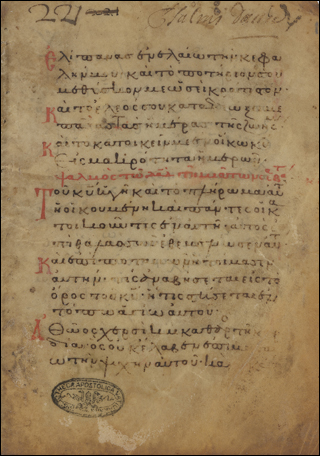 22
Psalmi Davidis
Ελίπανας ἐν ἐλαίω τὴν κεφα
λήν μου καὶ τὸ ποτήριόν σου
μεθύσκον με ὡσεὶ κράτιστον·
Καὶ τὸ ἔλεός σου καταδιώξει με
πάσας τὰς ἡμέρας τῆς ζωῆς
Κ τὸ κατοικεῖν με ἐν οἴκω κυ
εἰς μακρότητα ἡμερῶν·
ψαλμὸς τῶ δαδ τῆς μιᾶς
Τοῦ κυ ἡ γῆ καὶ τὸ πλήρωμα αὐτ
ἡ οἰκουμένη καὶ πάντες οἱ κ
τοικοῦντες ἐν αὐτῆ· αὐτὸς
ἐπὶ θαλασσῶν ἐθεμελίωσεν αὐτ
Καὶ ἐπὶ ποταμῶν ἡτοίμασεν
αὐτήν· τίς ἀναβήσεται εἰς τὸ
ὄρος τοῦ κυ ἢ τίς στήσεται ἐν
τόπω ἁγίω αὐτοῦ·
Αθῶος χερσὶ καὶ καθαρὸς τῆ καρ
δία ὃς οὐκ ἔλαβεν ἐπὶ ματαί
ω τὴν ψυχὴν αὐτοῦ· καὶ